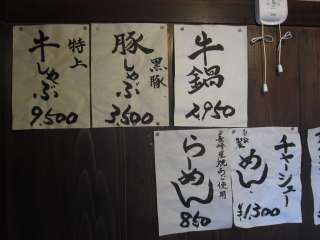 特上
牛しゃぶ
9.500
黒豚
豚しゃぶ
3.500
牛鍋
2.950
長崎産焼あご使用
らーめん
850
チャーシュー
めん
¥1,300